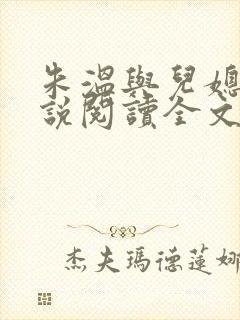 朱溫與兒媳
說閱讀全文
杰夫瑪德蓮娜